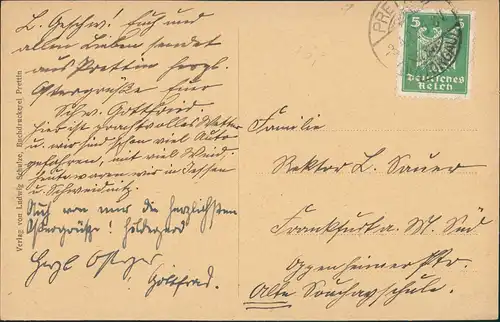 L. Geschw.! Euch und
allen Lieben sendet
aus Prettin herzl.
Ostergrüße Euer
Schw. Gottfried.
Hier ist prachtvolles Wetter
u. wir sind schon viel Auto
gefahren, mit viel Wind.
Heute waren wir in Jessen
u. Schweidnitz.
Auch von mir die herzlichsten
Ostergrüße! Hildegard
Herzl
Gottfried.
Verlag von Ludwig Schulze, Buchdruckerei Prettin
PRET
5 5
Deutsches
Reich
Familie
Rektor L. Sauer
Frankfurt a. M. Süd
Oppenheimerstr.
Alte Souchayschule.